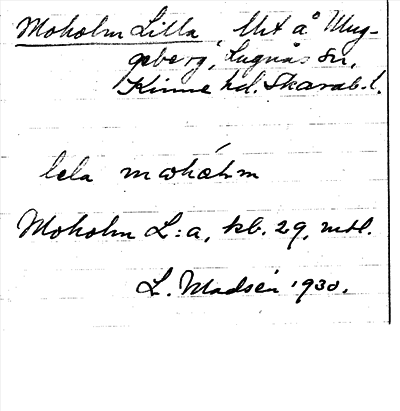 Moholm Lilla, lht å Mug-
geberg, Lugnås sn,
Kinne hd. Skarab. l.
lela mohólm
Moholm L:a, kb. 29, mtl.
L. Madsén 1930.